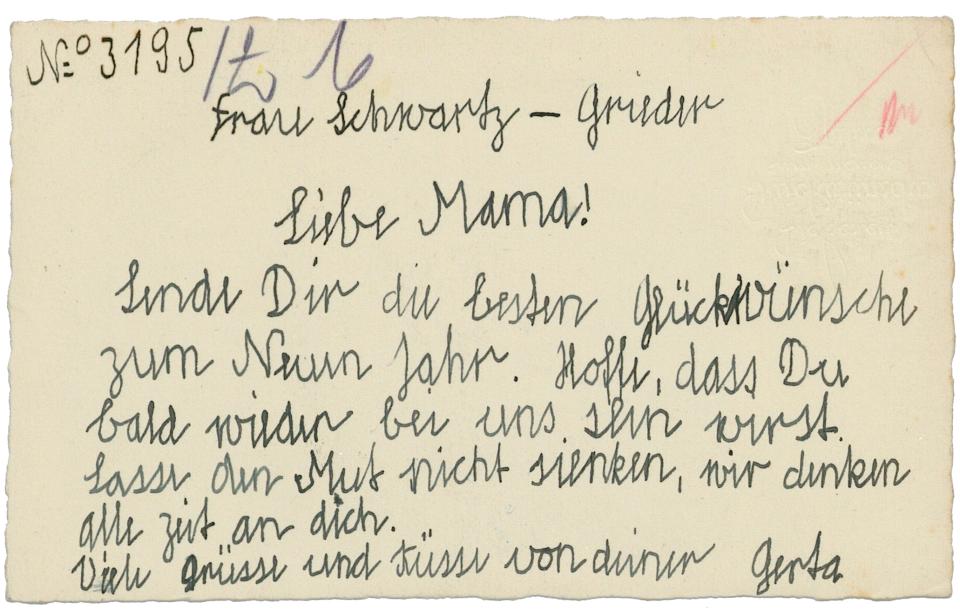 № 3195
Frau Schwartz – Grieder
Liebe Mama!
Sende Dir die besten Glückwünsche
zum Neuen Jahr. Hoffe, dass Du
bald wieder bei uns sein wirst.
Lasse den Mut nicht sienken, wir denken
alle zeit an dich.
Viele grüsse und küsse von deiner Gerta